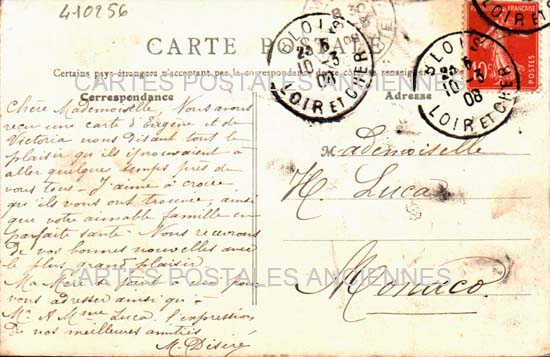 410256
CARTE POSTALE
Certains pays étrangers n'acceptent pas la correspondance de ce côté, se renseigner
Correspondance
Adresse
Chère Mademoiselle. Nous avons
reçu une carte d'Eugène et de
Victoria nous disant tout le
plaisir qu'ils éprouvaient à
aller quelque temps près de
vous tous. J'aime à croire
qu'ils vous ont trouvée, ainsi
que votre aimable famille en
parfait santé. Nous recevrons
de vos bonnes nouvelles avec
le plus grand plaisir
Ma Mère se joint à moi pour
vous adresser ainsi qu'à
Mr & Mme Luca l'expression
de nos meilleures amitiés
M. Désiré
Mademoiselle
H. Luca
Monaco
BLOIS
10-3
08
LOIR ET CHER
BLOIS
10-3
08
LOIR ET CHER
LOIR ET
FRANÇAISE
10c
CARTES POSTALES ANCIENNES
CARTES POSTALES ANCIENNES